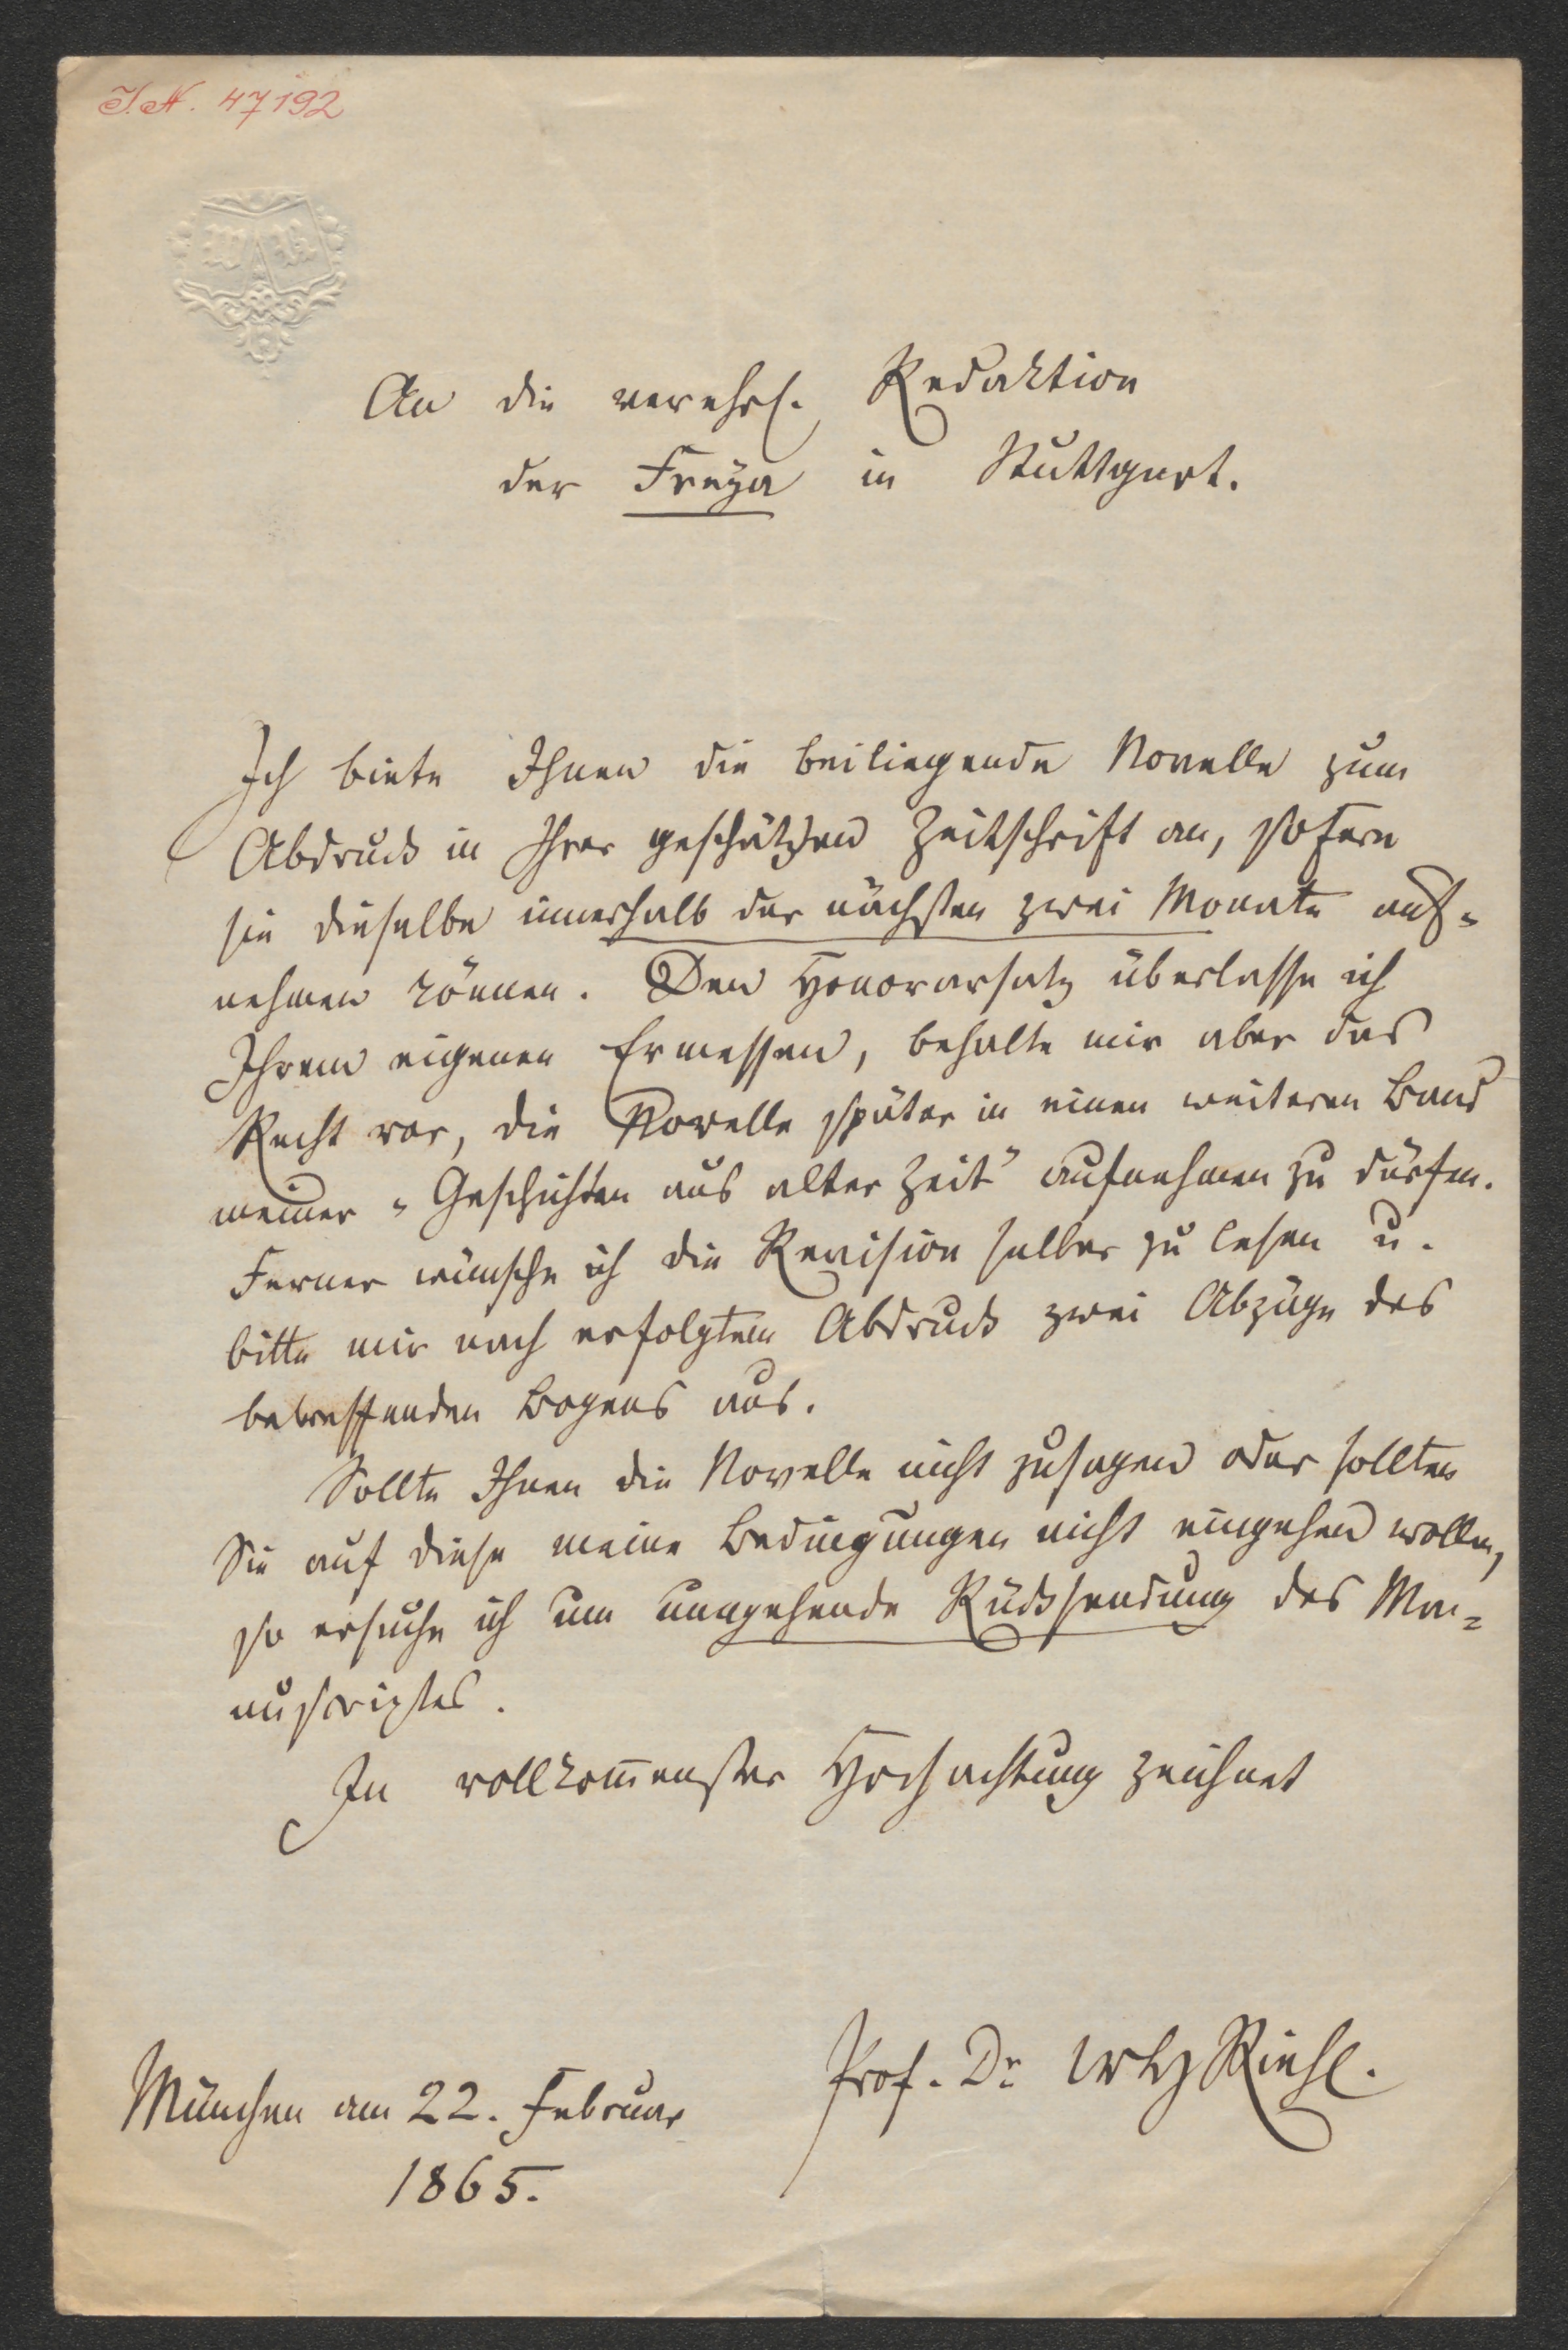 I.N. 47192
An die verehrl. Redaktion
der Freya in Stuttgart.
Ich biete Ihnen die beiliegende Novelle zum
Abdruck in Ihrer geschätzten Zeitschrift an, sofern
sie dieselbe innerhalb der nächsten zwei Monate auf-
nehmen können. Den Honorarsatz überlasse ich
Ihrem eigenen Ermessen, behalte mir aber das
Recht vor, die Novelle später in einen weiteren Band
meiner „Geschichten aus alter Zeit" aufnehmen zu dürfen.
Ferner wünsche ich die Revision selber zu lesen u.
bitte mir nach erfolgtem Abdruck zwei Abzüge des
betreffenden Bogens aus.
Sollte Ihnen die Novelle nicht zusagen oder sollten
Sie auf diese meine Bedingungen nicht eingehen wollen,
so ersuche ich um umgehende Rücksendung des Ma-
nuscriptes.
In vollkom̅enster Hochachtung zeichnet
Prof. Dr WH Riehl.
München am 22. Februar
1865.